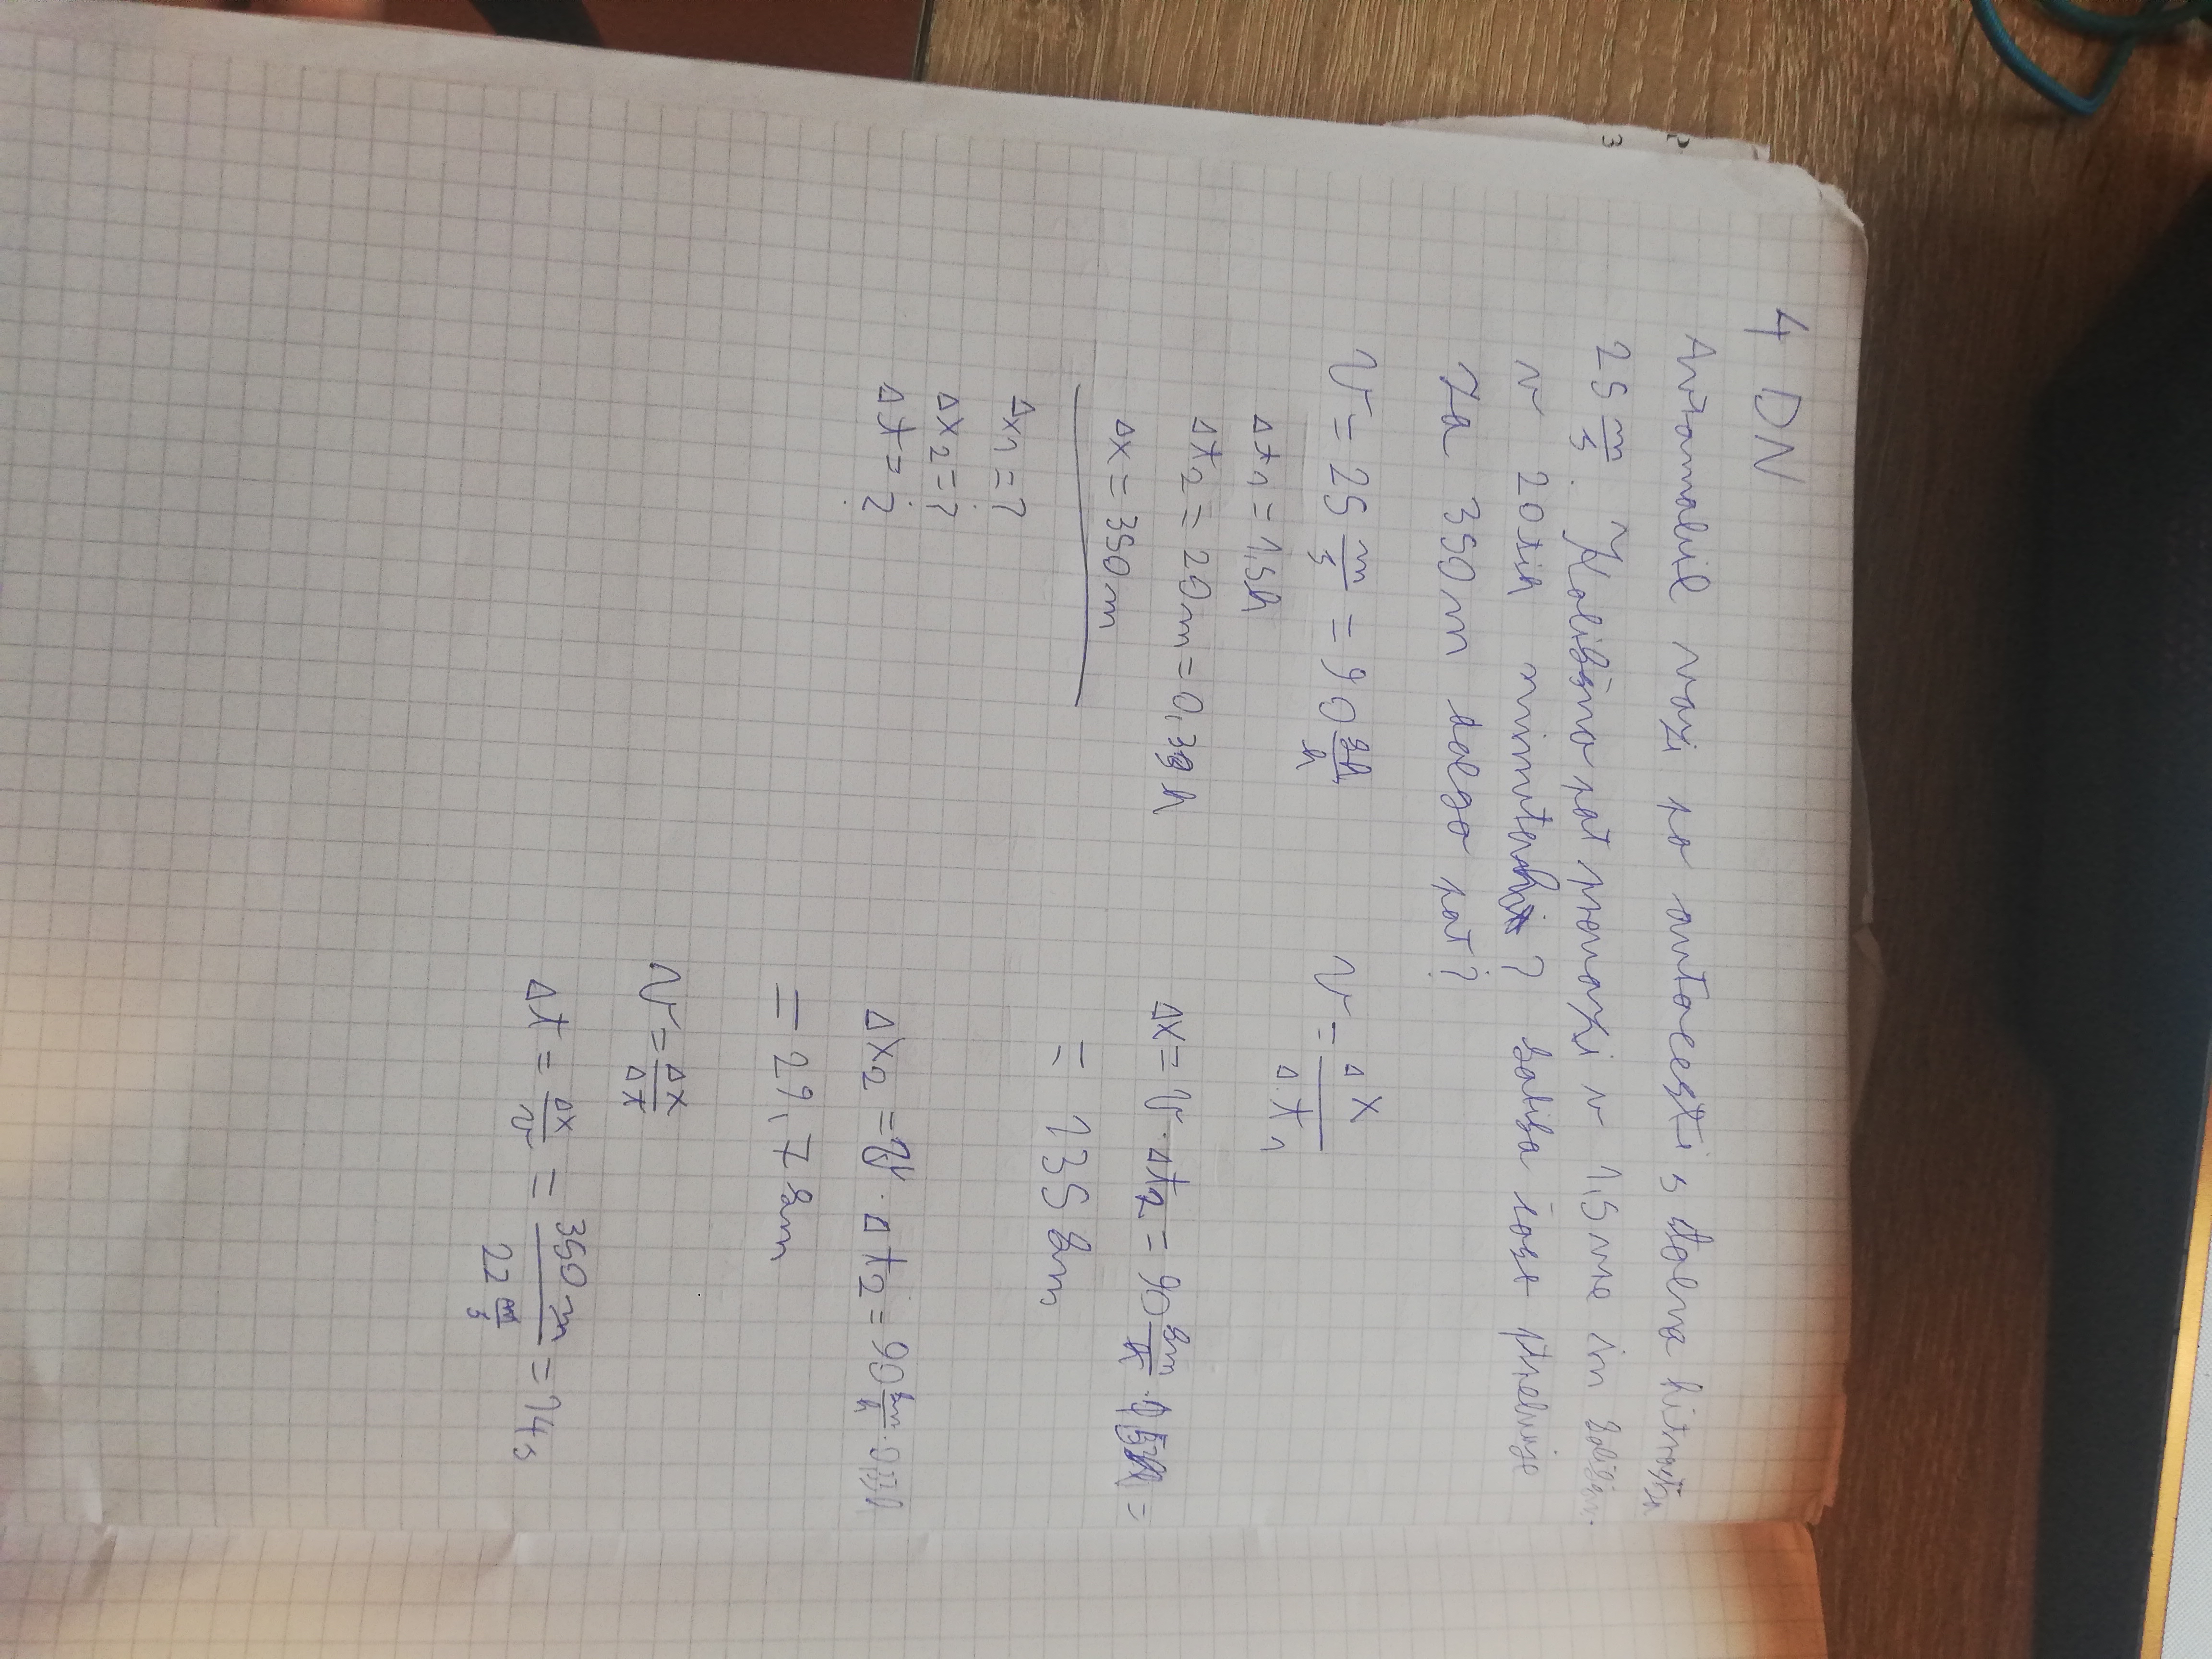 4 DN
Avtomobil vozi po avtocesti s stalno hitrostjo
25 m/s. Kolikšno pot prevozi v 1,5 ure in koliko
v 20tih minutah? koliko časa potrebuje
za 350 m dolgo pot?
v = 25 m/s = 90 km/h
Δt₁ = 1,5h
Δt₂ = 20m = 0,33 h
Δx = 350m
Δx₁ = ?
Δx₂ = ?
Δt = ?
v = Δx/Δt₁
Δx = v · Δt₂ = 90 km/h · 1,5h =
= 135 km
Δx₂ = v · Δt₂ = 90 km/h · 0,33h
= 29,7 km
v = Δx/Δt
Δt = Δx/v = 350m / 22 m/s = 14s